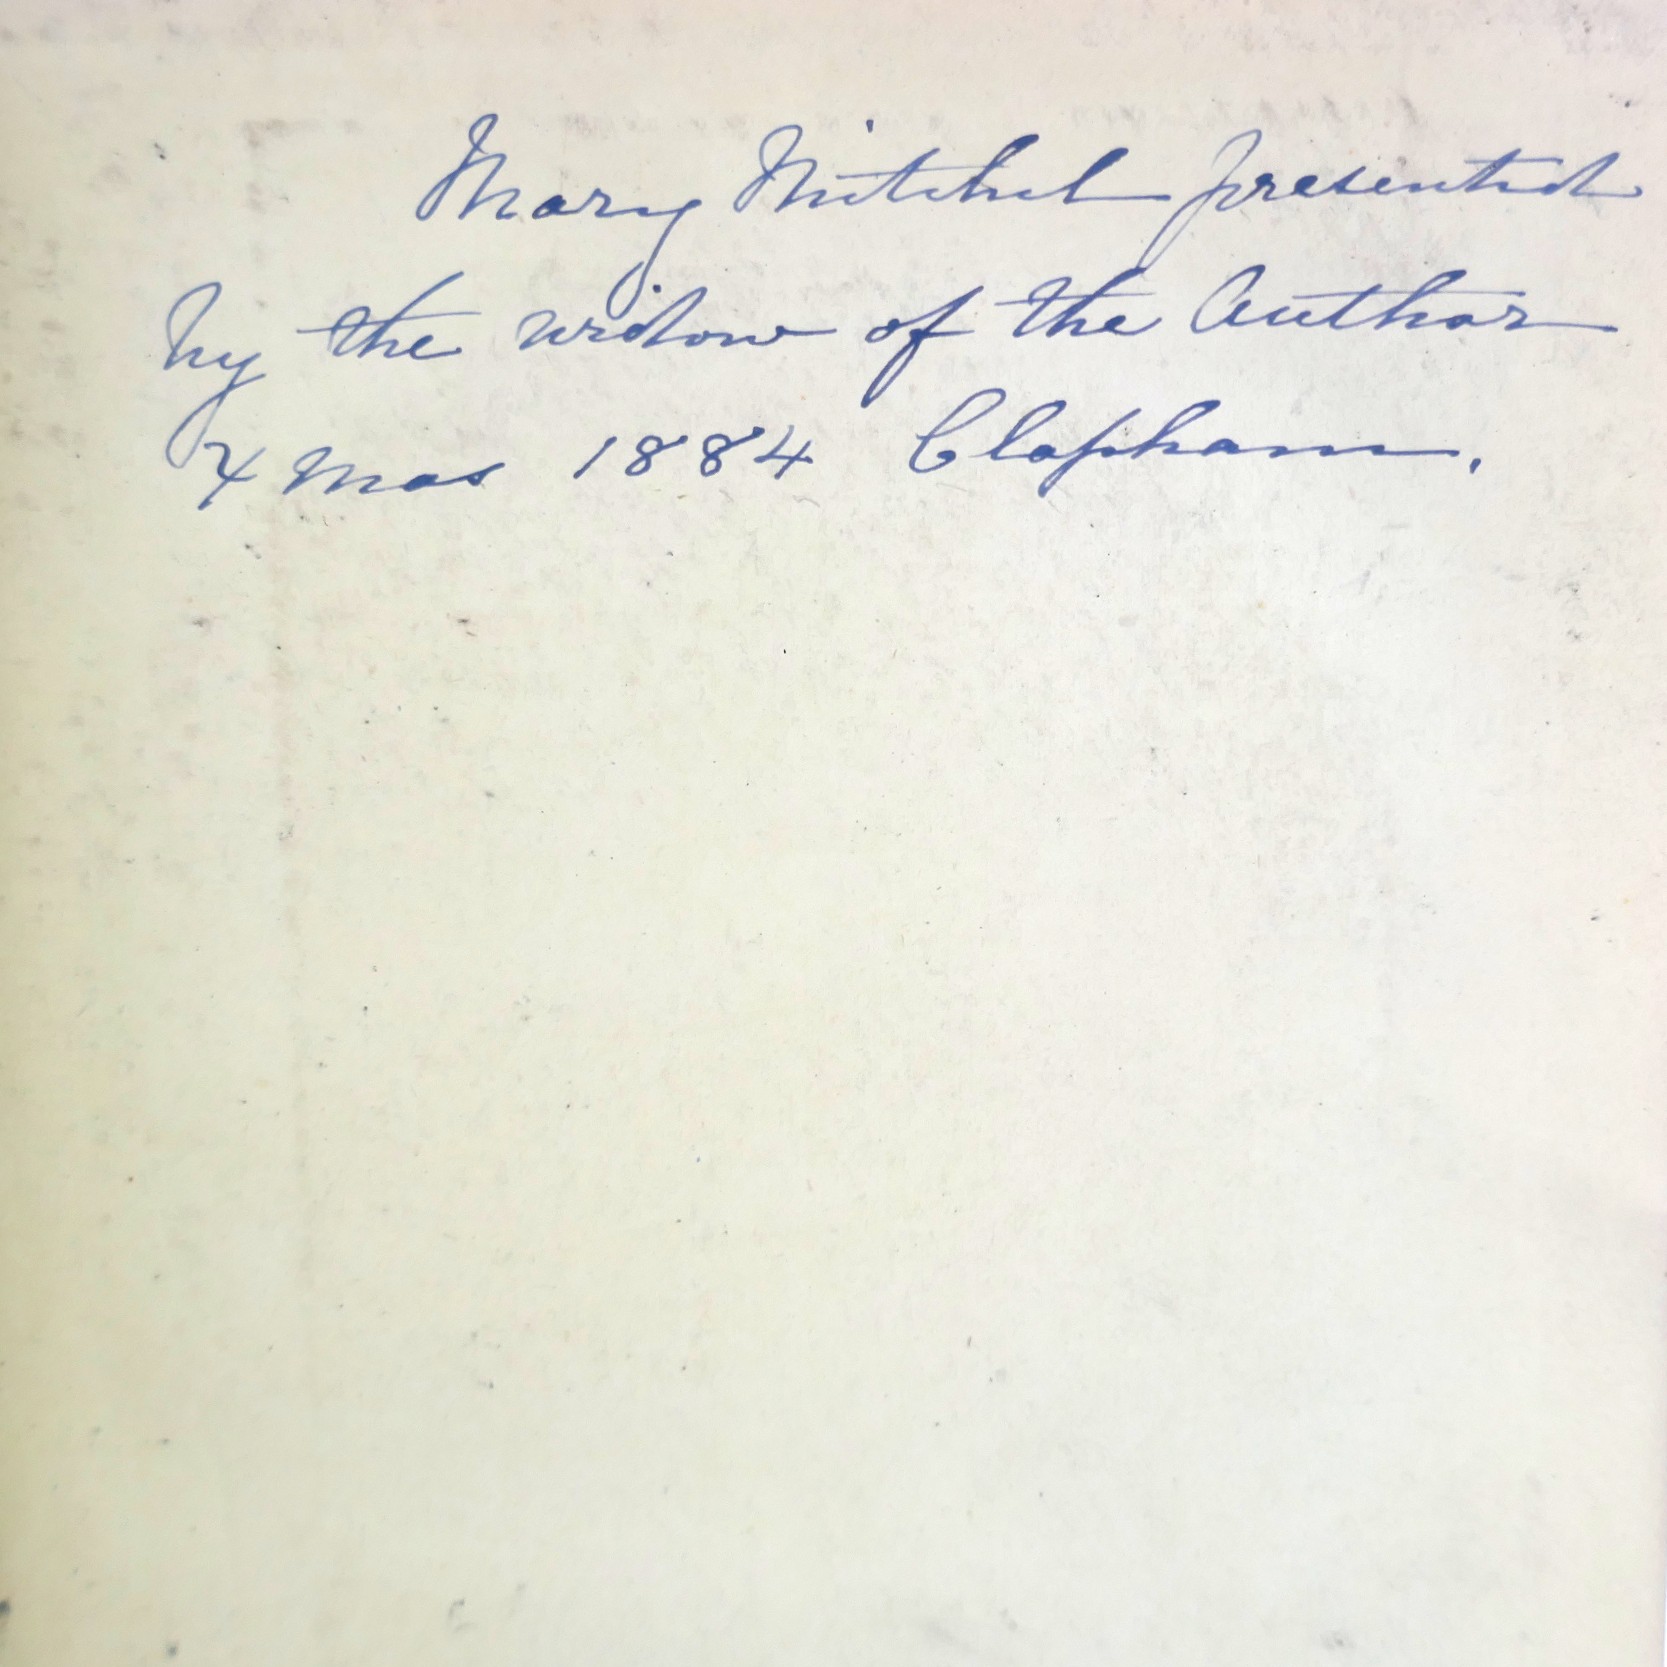 Mary Mitchel presented
by the widow of the Author
4 Mos 1884 Clapham.